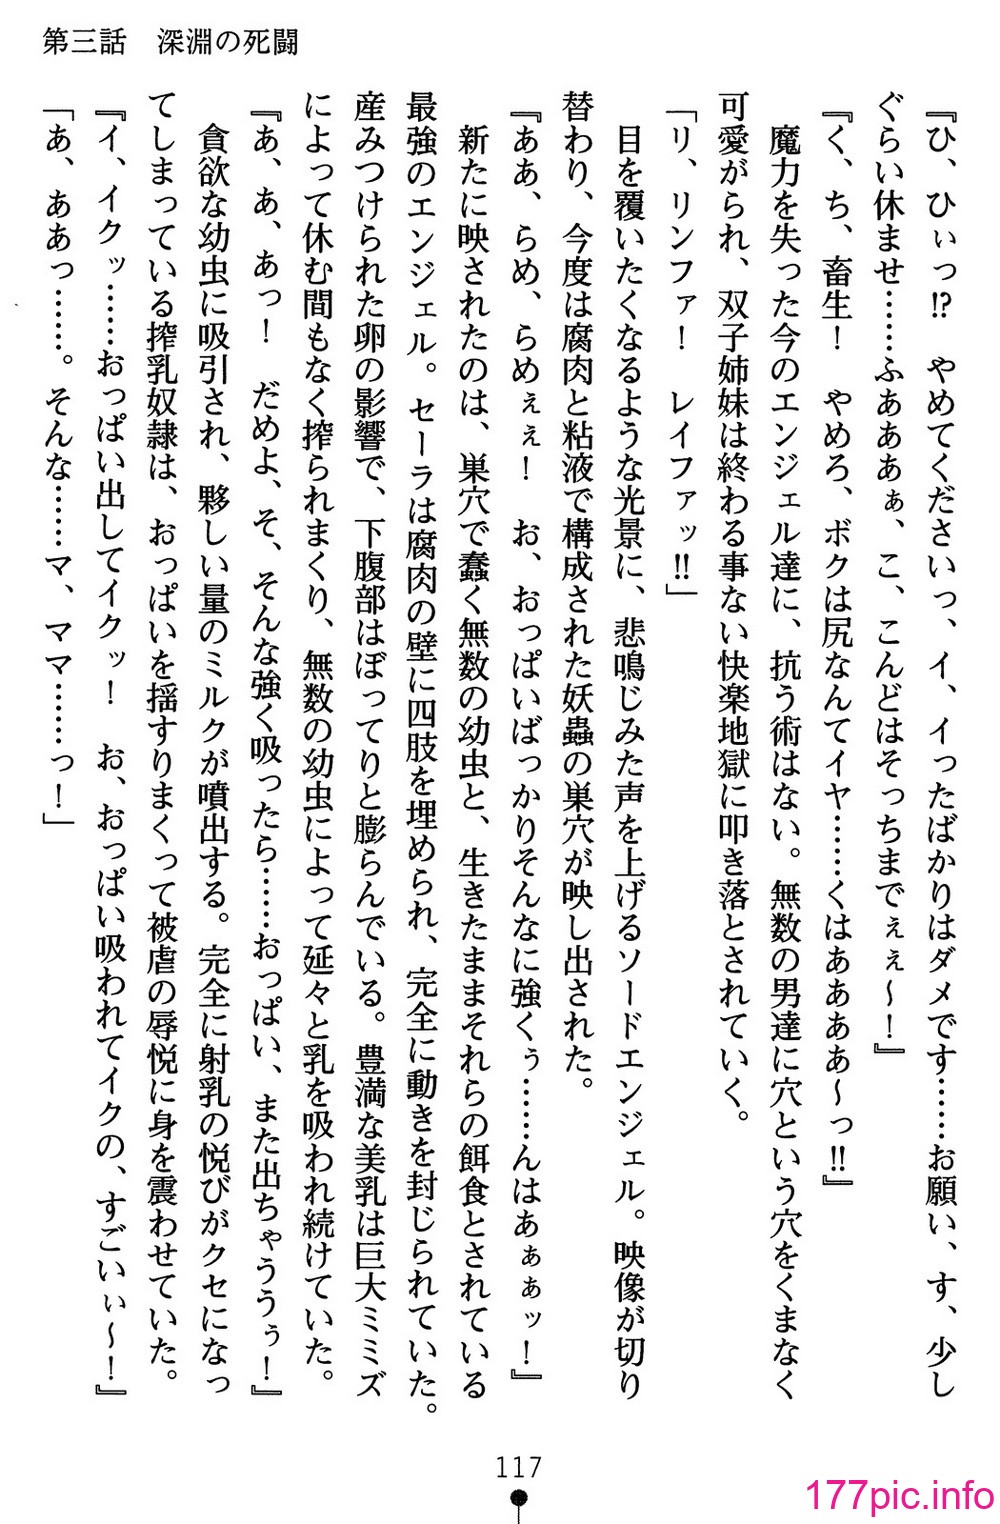 第三話　深淵の死闘
『ひ、ひぃっ!?　やめてくださいっ、イ、イったばかりはダメです……お願い、す、少し
ぐらい休ませ……ふあああぁ、こ、こんどはそっちまでぇぇ～！』
『く、ち、畜生！　やめろ、ボクは尻なんてイヤ……くはあああ～っ‼』
魔力を失った今のエンジェル達に、抗う術はない。無数の男達に穴という穴をくまなく
可愛がられ、双子姉妹は終わる事ない快楽地獄に叩き落とされていく。
「リ、リンファ！　レイファッ‼」
目を覆いたくなるような光景に、悲鳴じみた声を上げるソードエンジェル。映像が切り
替わり、今度は腐肉と粘液で構成された妖蟲の巣穴が映し出された。
『ああ、らめ、らめぇぇ！　お、おっぱいばっかりそんなに強くぅ……んはあぁぁッ！』
新たに映されたのは、巣穴で蠢く無数の幼虫と、生きたままそれらの餌食とされている
最強のエンジェル。セーラは腐肉の壁に四肢を埋められ、完全に動きを封じられていた。
産みつけられた卵の影響で、下腹部はぼってりと膨らんでいる。豊満な美乳は巨大ミミズ
によって休む間もなく搾られまくり、無数の幼虫によって延々と乳を吸われ続けていた。
『あ、あ、あっ！　だめよ、そ、そんな強く吸ったら……おっぱい、また出ちゃううぅ！』
貪欲な幼虫に吸引され、夥しい量のミルクが噴出する。完全に射乳の悦びがクセになっ
てしまっている搾乳奴隷は、おっぱいを揺すりまくって被虐の辱悦に身を震わせていた。
『イ、イクッ……おっぱい出してイクッ！　お、おっぱい吸われてイクの、すごいぃ～！』
「あ、ああっ……。そんな……マ、ママ……っ！」
117
177pic.info